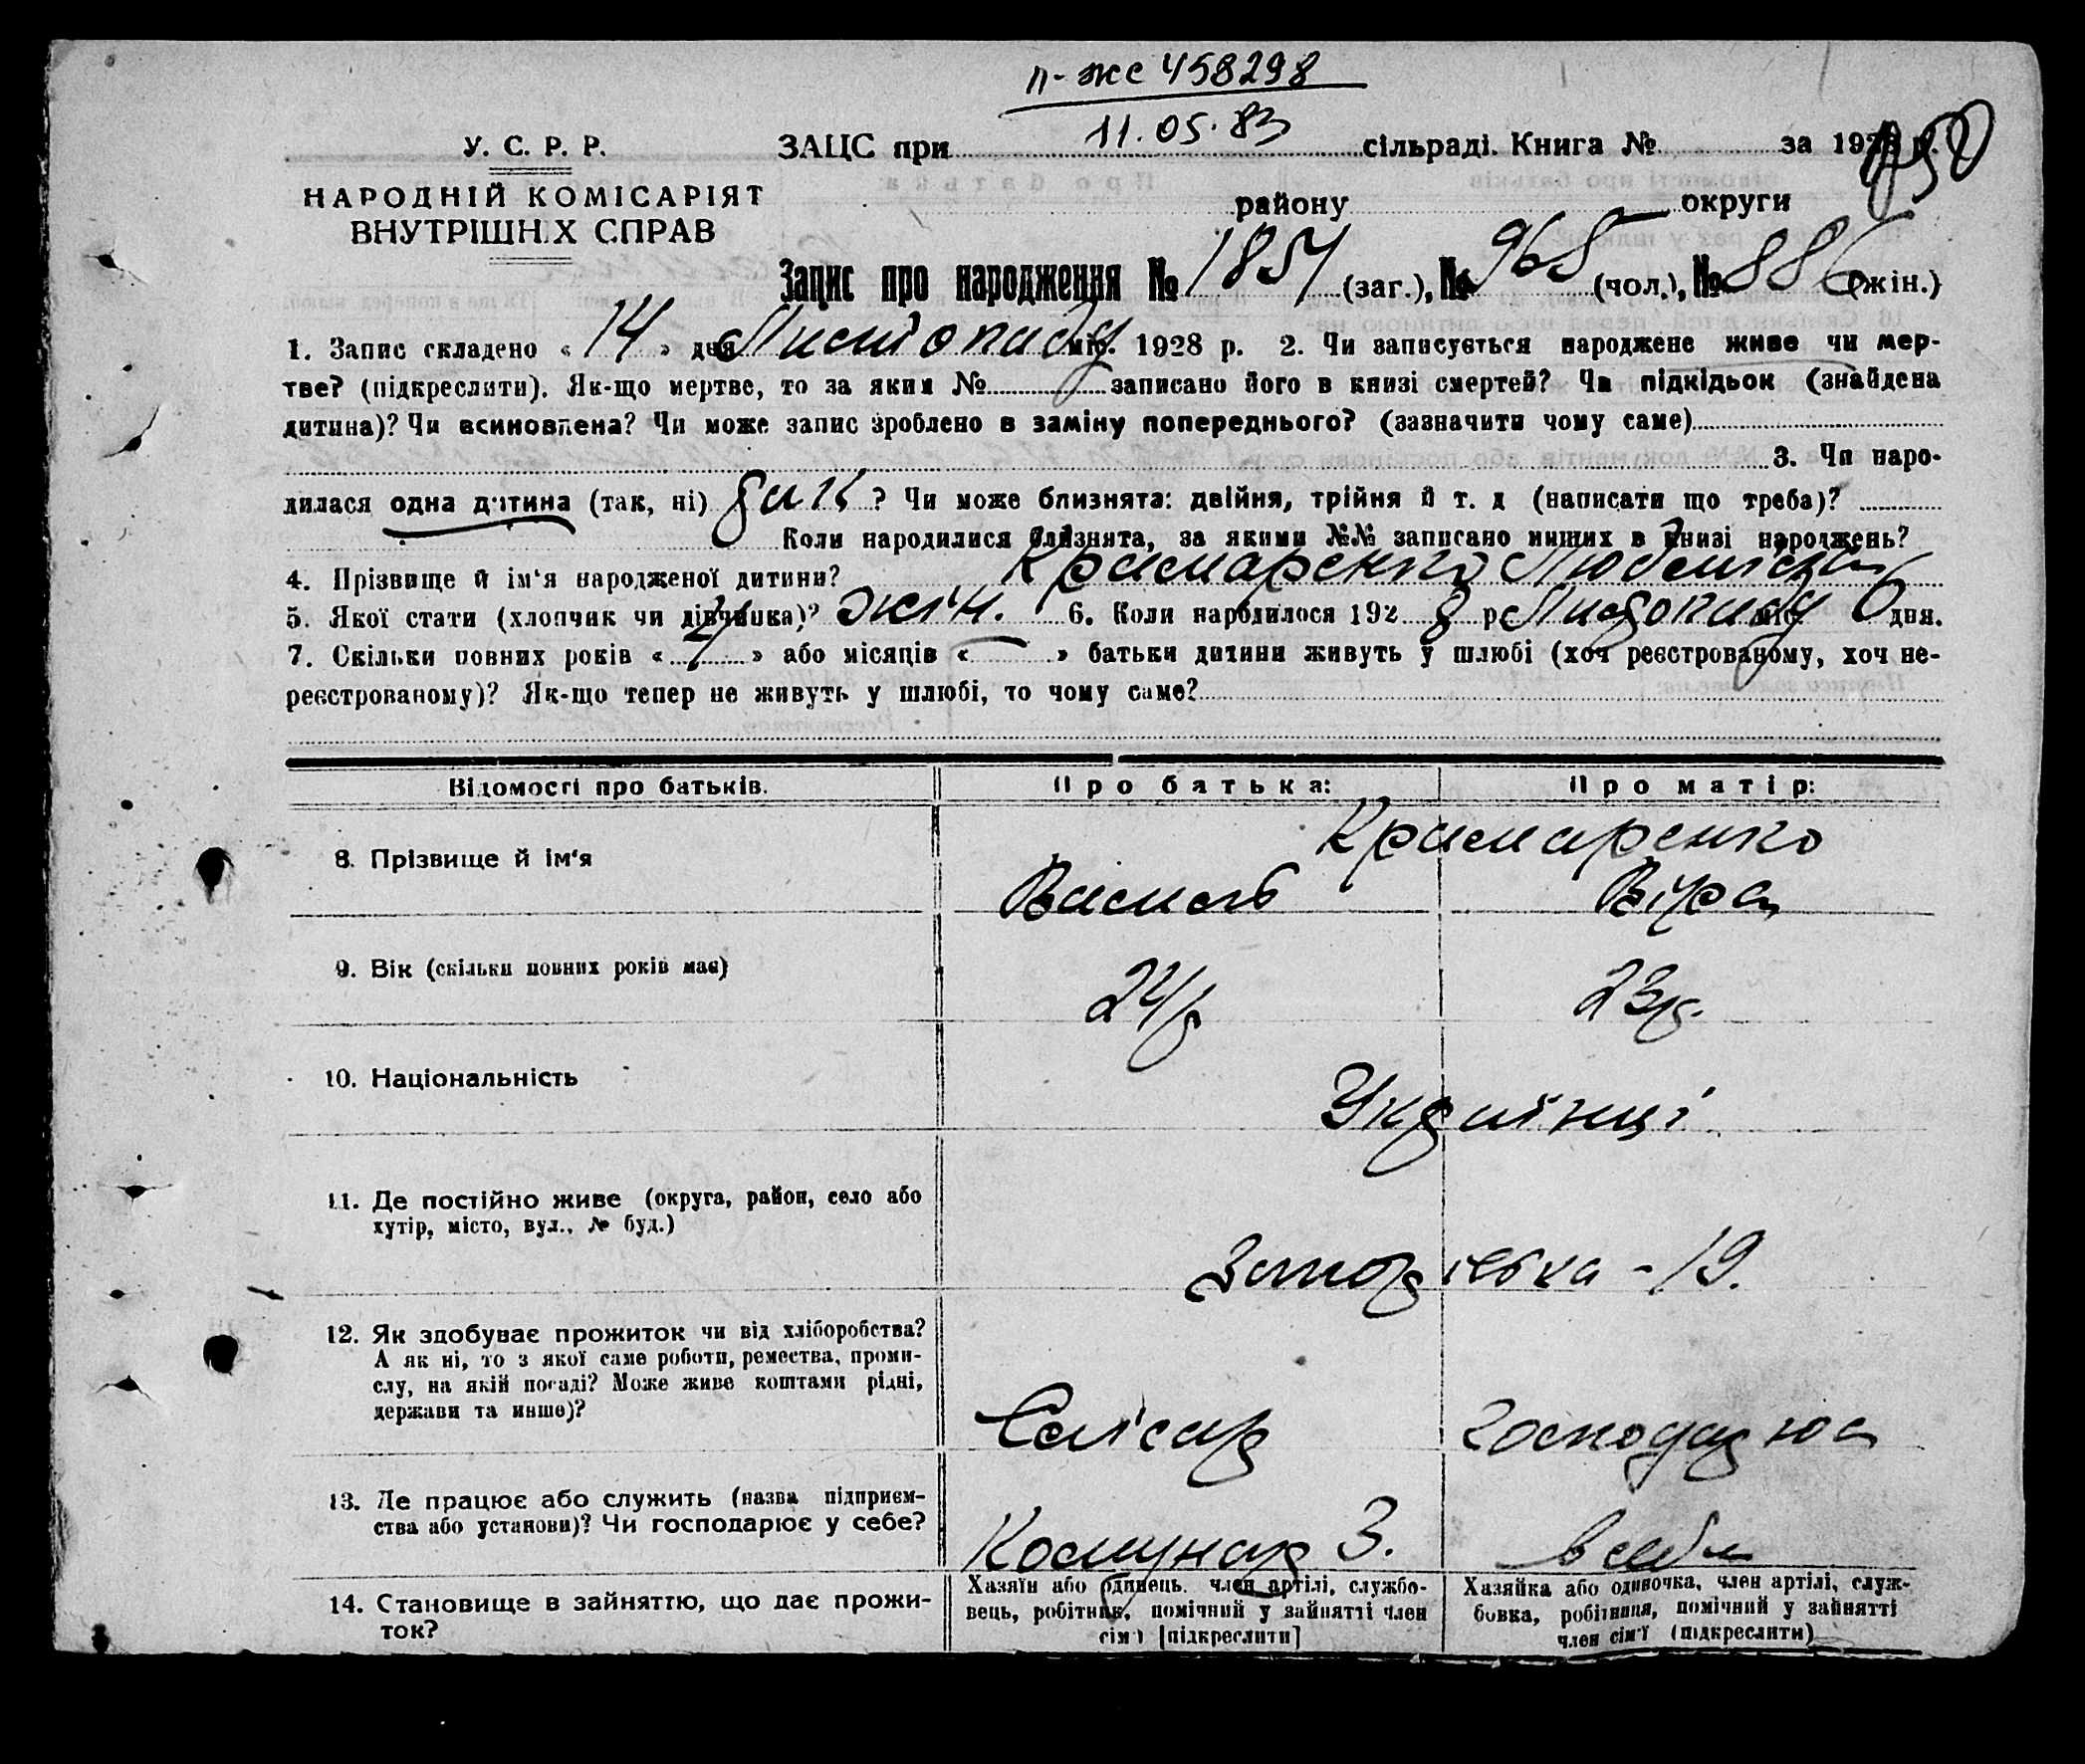 п-жс 458298
11.05.83
У. С. Р. Р.
ЗАЦС при сільраді. Книга № за 1928 р.
НАРОДНІЙ КОМІСАРІЯТ
ВНУТРІШНІХ СПРАВ
району округи
Запис про народження № 1854 (заг.), № 968 (чол.), № 886 (жін.)
1. Запис складено « 14 » дня Листопаду міс. 1928 р. 2. Чи записується народжене живе чи мер-
тве? (підкреслити). Як-що мертве, то за яким № записано його в книзі смертей? Чи підкідьок (знайдена
дитина)? Чи всиновлена? Чи може запис зроблено в заміну попереднього? (зазначити чому саме)
3. Чи наро-
дилася одна дитина (так, ні) ? Чи може близнята: двійня, трійня й т. д (написати що треба)?
Коли народилися близнята, за якими №№ записано инших в книзі народжень?
4. Прізвище й ім'я народженої дитини? Крамаренко
5. Якої стати (хлопчик чи дівчинка)? жін. 6. Коли народилося 192 8 р. Листопаду міс. 6 дня.
7. Скільки повних років « » або місяців « » батьки дитини живуть у шлюбі (хоч реєстрованому, хоч не-
реєстрованому)? Як-що тепер не живуть у шлюбі, то чому саме?
Відомості про батьків. Про батька: Про матір:
Крамаренко
8. Прізвище й ім'я
Василь Віра
9. Вік (скільки повних років має)
24р 23р.
10. Національність
Українці
11. Де постійно живе (округа, район, село або
хутір, місто, вул., № буд.)
-19.
12. Як здобуває прожиток чи від хліборобства?
А як ні, то з якої саме роботи, ремества, проми-
слу, на якій посаді? Може живе коштами рідні,
держави та инше)?
Слісар Господарює
13. Де працює або служить (назва підприєм-
ства або установи)? Чи господарює у себе?
Комунар З. в себе
14. Становище в зайняттю, що дає прожи-
ток?
Хазяїн або одинець, член артілі, службо-
вець, робітник, помічний у зайнятті член
сім'ї [підкреслити]
Хазяйка або одиночка, член артілі, служ-
бовка, робітниця, помічний у зайнятті
член сім'ї (підкреслити)